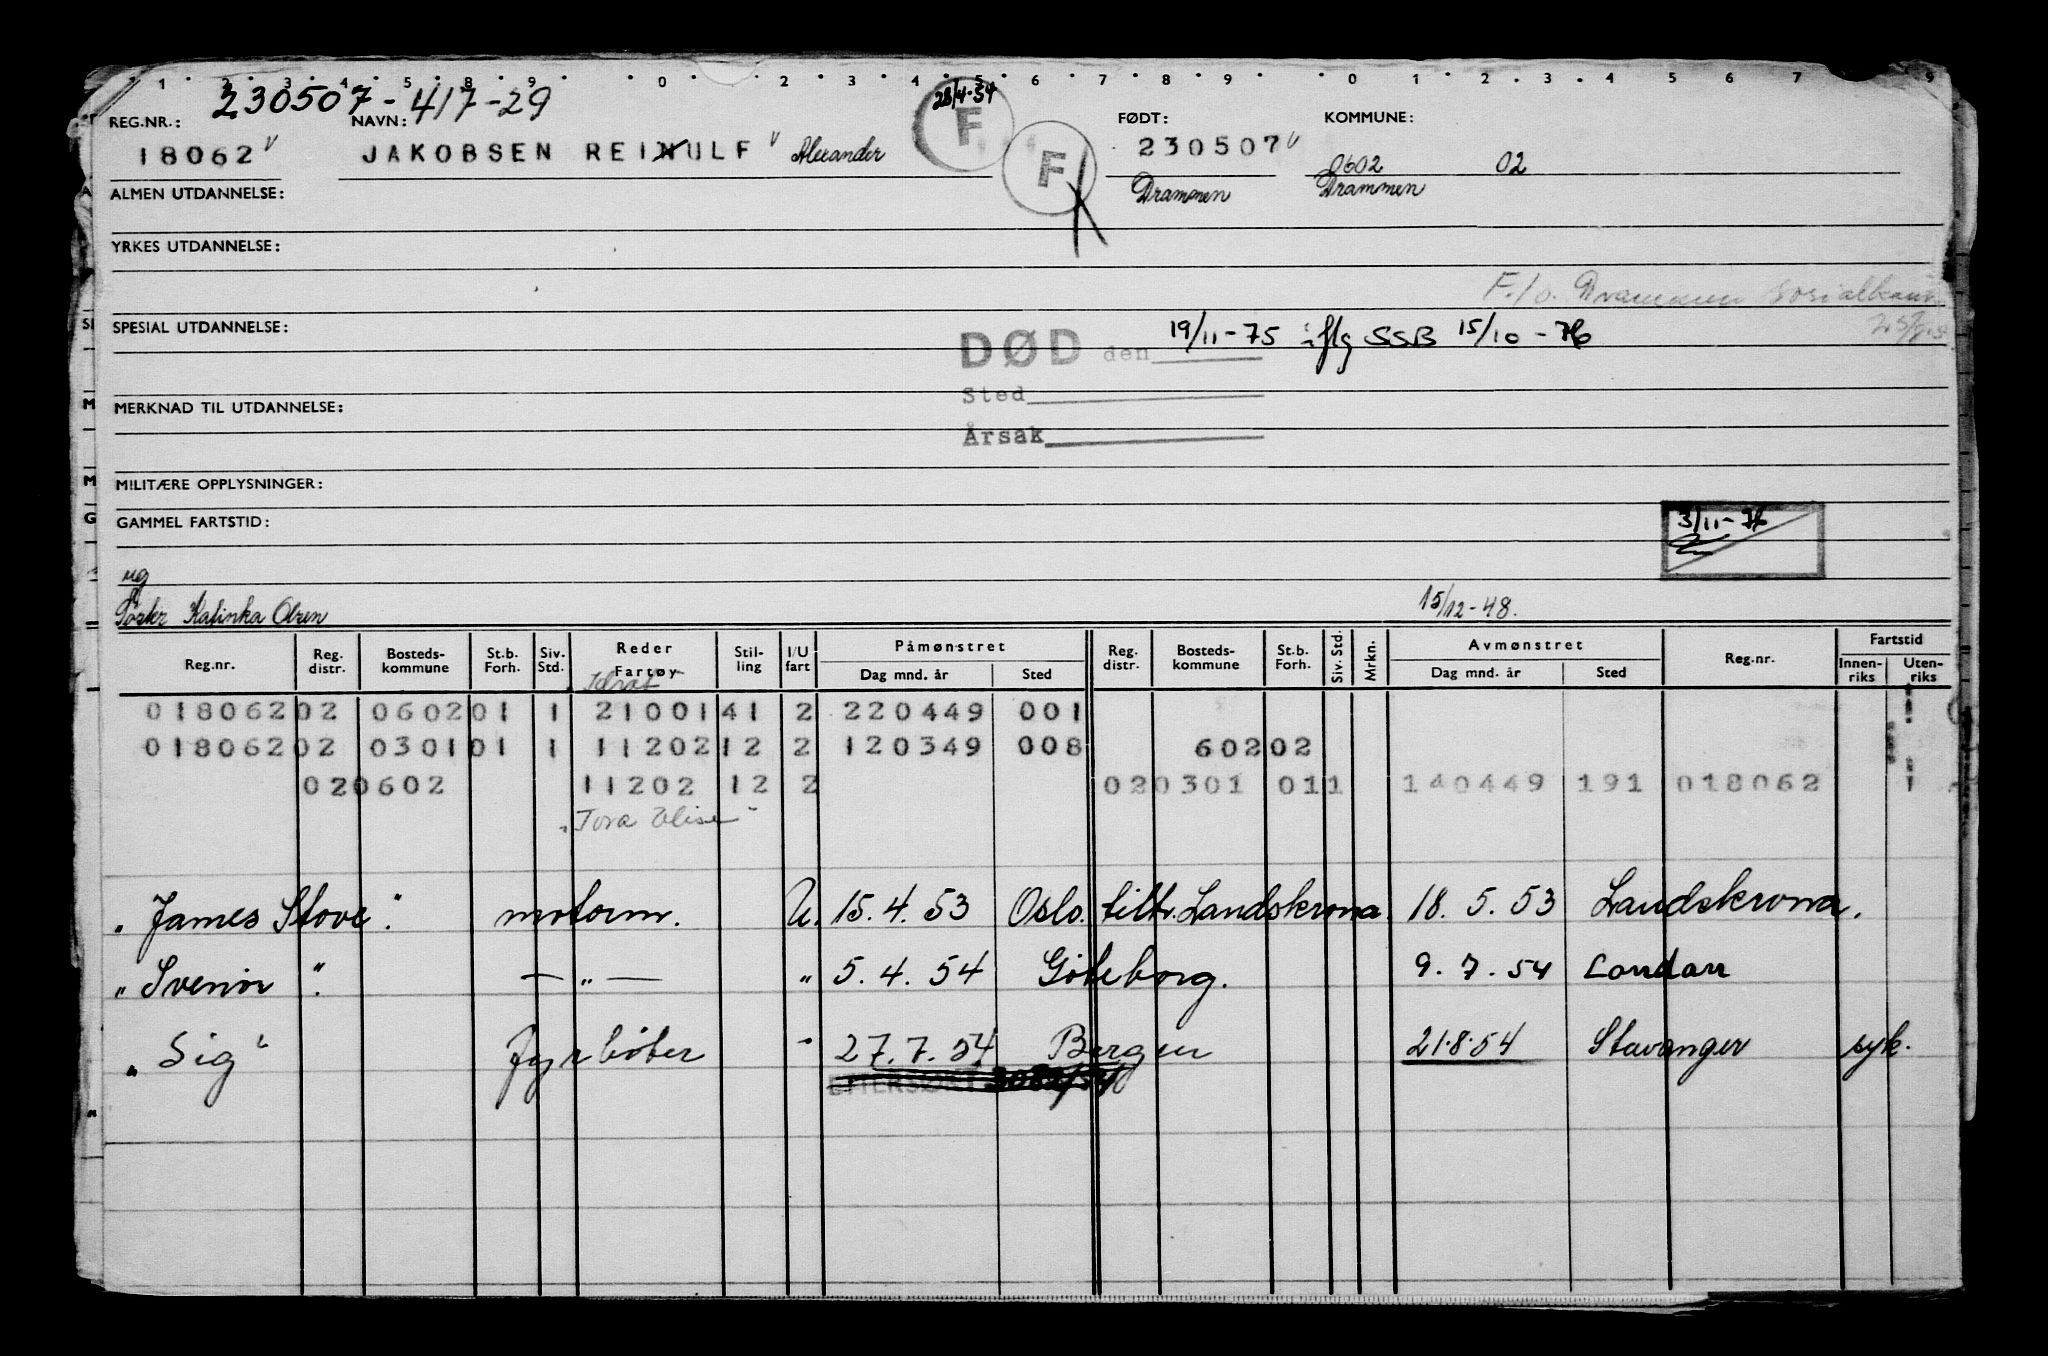 1 2 3 4 5 8 9 0 2 3 4 5 6 7 8 9 0 1 2 3 4 5 6 7 9
230507-417-29
28/4-54
REG.NR.: NAVN: F FØDT: KOMMUNE:
18062 V JAKOBSEN REINULF V Alexander F 230507 V 0602 02
ALMEN UTDANNELSE: Drammen Drammen
YRKES UTDANNELSE:
F./o. Drammen
SPESIAL UTDANNELSE:
DØD den 19/11-75 iflg SSB 15/10-76
Sted
MERKNAD TIL UTDANNELSE:
Årsak
MILITÆRE OPPLYSNINGER:
GAMMEL FARTSTID: 3/11-76
ug
Søster Katinka Olsen 15/12-48.
Reg.nr. Reg. distr. Bosteds- kommune St.b. Forh. Siv. Std. Reder Fartøy Stil- ling I/U fart Påmønstret Dag mnd. år Sted Reg. distr. Bosteds- kommune St.b. Forh. Siv. Std. Mrkn. Avmønstret Dag mnd. år Sted Reg.nr. Fartstid Innen- riks Uten- riks
01806202 060201 1 2100141 2 220449 001
01806202 030101 1 1120212 2 120349 008 60202
020602 11202 12 2 020301 011 140449 191 018062
"Tora Elise"
"James Stove" motorm. U. 15.4.53 Oslo. tiltr. Landskrona. 18.5.53 Landskrona.
"Svenör" — " — " 5.4.54 Göteborg. 9.7.54 London
"Sig" Fyrböter " 27.7.54 Bergen 21.8.54 Stavanger syk.